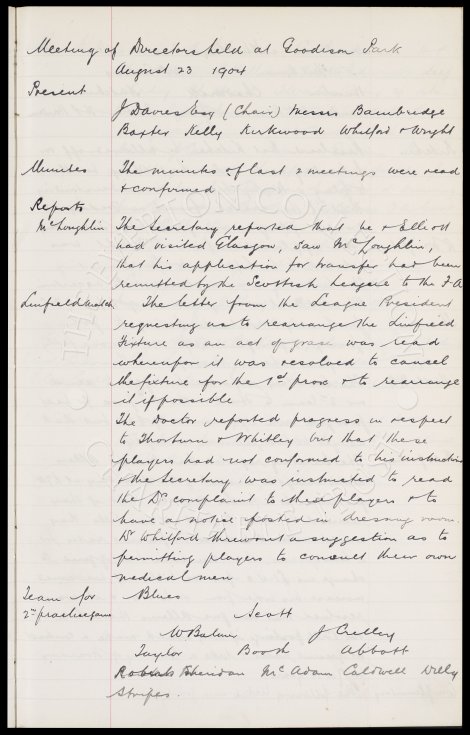 Meeting of Directors held at Goodison Park
August 23 1904
Present
J Davies Esq (Chair) Messrs Bainbridge
Baxter Kelly Kirkwood Whitford & Wright
Minutes The minutes of last 2 meetings were read
& confirmed
Reports
McLoughlin The Secretary reported that he & Elliott
had visited Glasgow, saw McLoughlin,
that his application for transfer had been
remitted by the Scottish League to the F.A
Linfield match The letter from the League President
requesting us to rearrange the Linfield
Fixture as an act of grace was read
whereupon it was resolved to cancel
the fixture for the 1st prox & to rearrange
it if possible
The Doctor reported progress in respect
to Thorburn & Whitley but that these
players had not conformed to his instructions
& the Secretary was instructed to read
the Drs complaint to these players & to
have a notice posted in dressing room.
Dr Whitford threw out a suggestion as to
permitting players to consult their own
medical men
Team for Blues
2nd practice game Scott
W Balmer J Crelley
Taylor Booth Abbott
Sheridan McAdam Caldwell
Stripes.